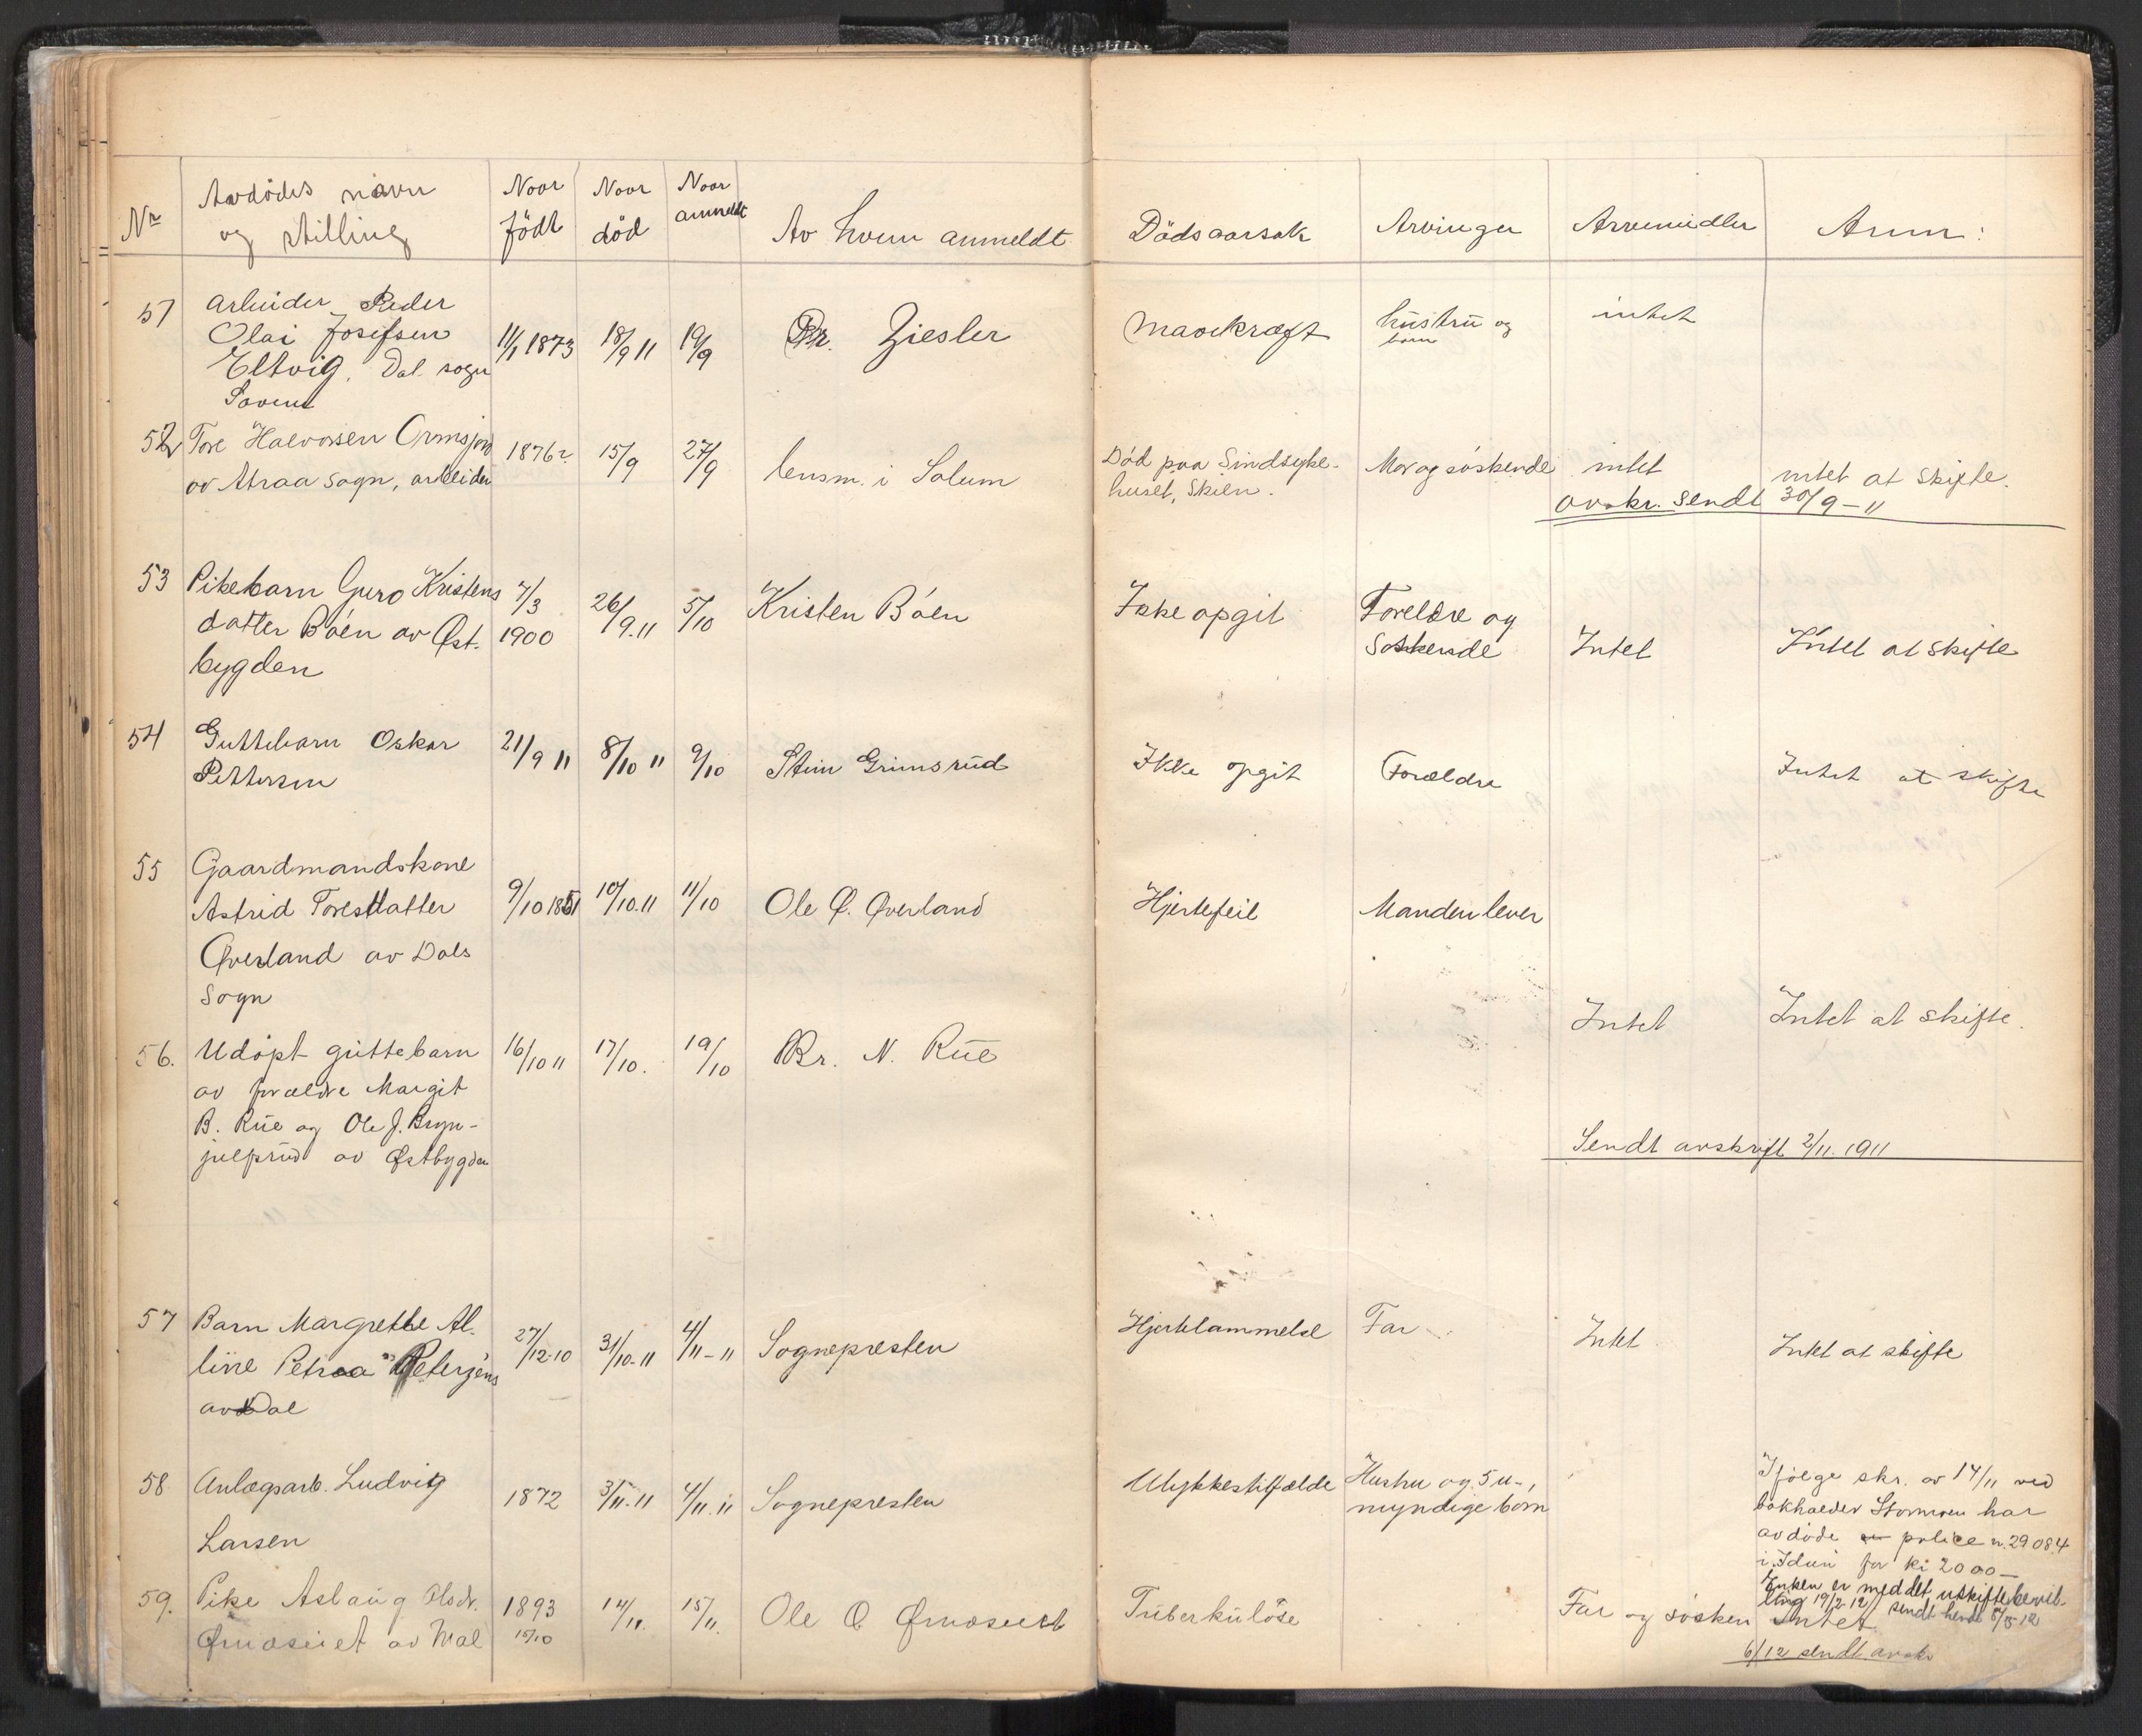 Nr
Avdødes navn
og stilling
Naar
født
Naar
død
Naar
anmeldt
Av hvem anmeldt
Dødsaarsak
Arvinger
Arvemidler
Anm:
51
Arbeider Peder
Olai Josefsen
Eltvig. Dal sogn
11/1 1873
18/9 11
19/9
Dr. Ziesler
Mavekræft
hustru og
barn
intet
52
Tore Halvorsen Ormsjord
av Atraa sogn, arbeider
1876?
15/9
27/9
lensm. i Solum
Død paa Sindsyke-
huset, Skien.
Mor og søskende
intet
intet at skifte.
avskr. sendt 30/9-11
53
Pikebarn Guro Kristens
datter Bøen av Øst.
bygden
7/3
1900
26/9.11
5/10
Kristen Bøen
Ikke opgit
Foreldre og
Søskende
Intet
Intet at skifte
54
Guttebarn Oskar
Pettersen
21/9 11
8/10 11
9/10
Stein Grimsrud
Ikke opgit
Forældre
Intet at skifte
55
Gaardmandskone
Astrid Toresdatter
Øverland av Dals
Sogn
9/10 1851
10/10.11
11/10
Ole Ø. Øverland
Hjertefeil
Manden lever
Intet
Intet at skifte.
56.
Udøpt guttebarn
av forældre Margit
B. Rue og Ole J. Bryn-
julfsrud av Østbygden
16/10 11
17/10.
19/10
Br. N. Rue
Sendt avskrift 2/11. 1911
57
Barn Margrethe Al.
line Petraa Petersens
av Dal
27/12-10
31/10-11
4/11-11
Sognepresten
Hjertelammelse
Far
Intet
Intet at skifte
58
Anlægsarb. Ludvig
Larsen
1872
3/11-11
4/11.11
Sognepresten
Ulykkestilfælde
Hustru og 5 u-,
myndige born
Ifølge skr. av 14/11 ved
bokholder Stormoen har
avdøde police n. 29084
i Idun for kr 2000-
Enken er meddelt uskiftebevil-
ling 19/2-12, sendt hende 5/3 12
59.
Pike Aslaug Olsdr.
Ørnæseiet av Mæl
1893
15/10
14/11.
15/11.
Ole O Ørnæseiet
Tuberkuløse
Far og søsken
Intet
6/12 sendt avskr